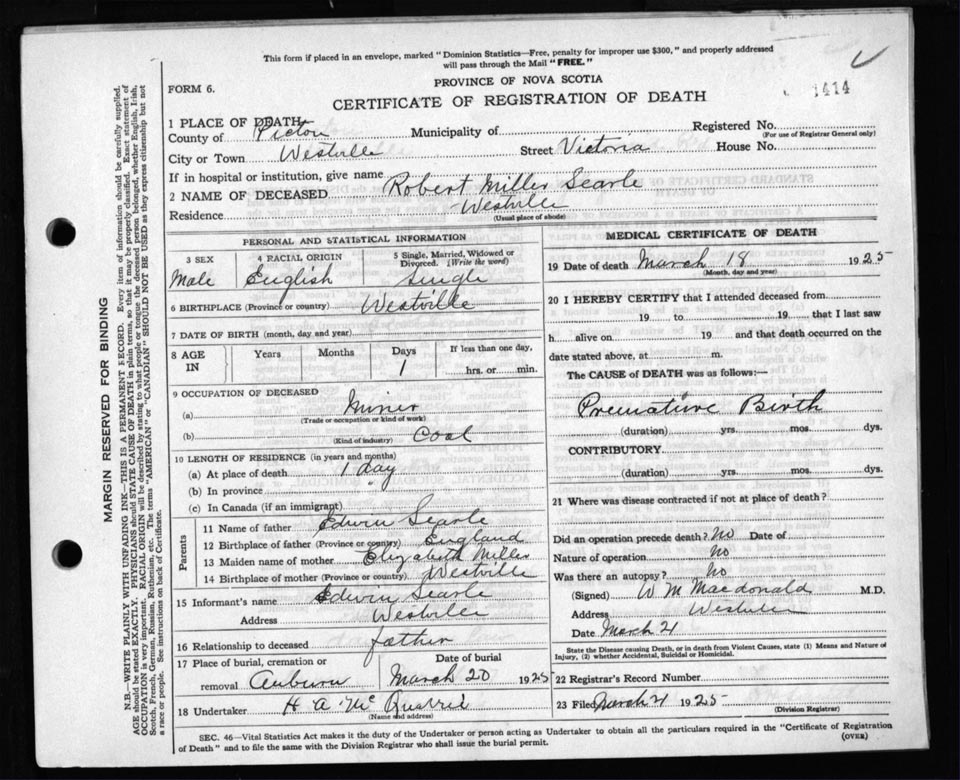 This form if placed in an envelope, marked "Dominion Statistics—Free, penalty for improper use $300," and properly addressed
will pass through the Mail "FREE."
PROVINCE OF NOVA SCOTIA
FORM 6.
CERTIFICATE OF REGISTRATION OF DEATH
1414
1 PLACE OF DEATH
County of Pictou Municipality of Registered No.
(For use of Registrar General only)
City or Town Westville Street Victoria House No.
If in hospital or institution, give name
2 NAME OF DECEASED Robert Miller Searle
Residence Westville
(Usual place of abode)
PERSONAL AND STATISTICAL INFORMATION
3 SEX 4 RACIAL ORIGIN 5 Single, Married, Widowed or Divorced. (Write the word)
Male English Single
6 BIRTHPLACE (Province or country) Westville
7 DATE OF BIRTH (month, day and year)
8 AGE IN Years Months Days If less than one day,
1 hrs. or min.
9 OCCUPATION OF DECEASED
(a) Miner
(Trade or occupation or kind of work)
(b) Coal
(Kind of industry)
10 LENGTH OF RESIDENCE (in years and months)
(a) At place of death 1 day
(b) In province "
(c) In Canada (if an immigrant)
Parents
11 Name of father Edwin Searle
12 Birthplace of father (Province or country) England
13 Maiden name of mother Elizabeth Miller
14 Birthplace of mother (Province or country) Westville
15 Informant's name Edwin Searle
Address Westville
16 Relationship to deceased father
17 Place of burial, cremation or removal Auburn
Date of burial March 20 1925
18 Undertaker H A Mc
(Name and address)
MEDICAL CERTIFICATE OF DEATH
19 Date of death March 18 1925
(Month, day and year)
20 I HEREBY CERTIFY that I attended deceased from
19 to 19 that I last saw
h alive on 19 and that death occurred on the
date stated above, at m.
The CAUSE of DEATH was as follows:—
Premature Birth
(duration) yrs. mos. dys.
CONTRIBUTORY
(duration) yrs. mos. dys.
21 Where was disease contracted if not at place of death?
Did an operation precede death? No Date of
Nature of operation No
Was there an autopsy? No
(Signed) W M Macdonald M.D.
Address Westville
Date March 21
State the Disease causing Death, or in death from Violent Causes, state (1) Means and Nature of
Injury, (2) whether Accidental, Suicidal or Homicidal.
22 Registrar's Record Number
23 Filed March 21 1925
(Division Registrar)
SEC. 46—Vital Statistics Act makes it the duty of the Undertaker or person acting as Undertaker to obtain all the particulars required in the "Certificate of Registration
of Death" and to file the same with the Division Registrar who shall issue the burial permit.
(OVER)
MARGIN RESERVED FOR BINDING
N.B.—WRITE PLAINLY WITH UNFADING INK—THIS IS A PERMANENT RECORD. Every item of information should be carefully supplied.
AGE should be stated EXACTLY. PHYSICIANS should STATE CAUSE OF DEATH in plain terms, so that it may be properly classified. Exact statement of
OCCUPATION is very important. RACIAL ORIGIN will be described by stating to what people or tongue the deceased person belonged, whether English, Irish,
Scotch, French, German, Russian, Ruthenian, etc. The terms "AMERICAN" or "CANADIAN" SHOULD NOT BE USED as they express citizenship but not
a race or people. See instructions on back of Certificate.